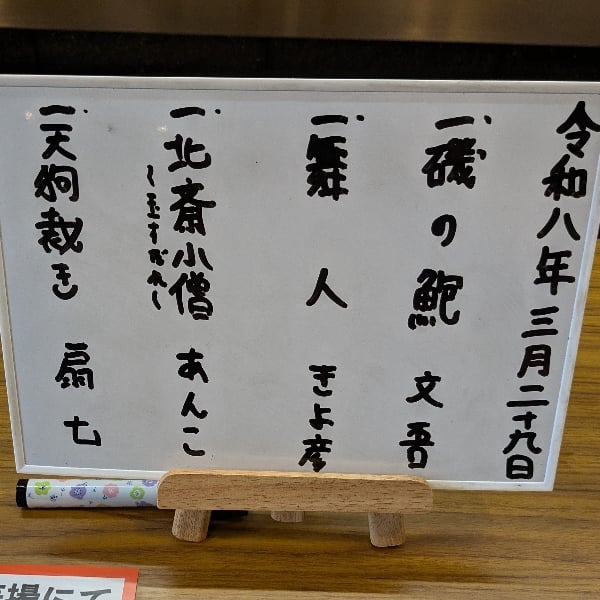 令和八年三月二十九日
一、磯の鮑 文吾
一、舞人 きよ彦
一、北斎小僧 あんこ
〜玉すだれ〜
一、天狗裁き 扇七
場にて